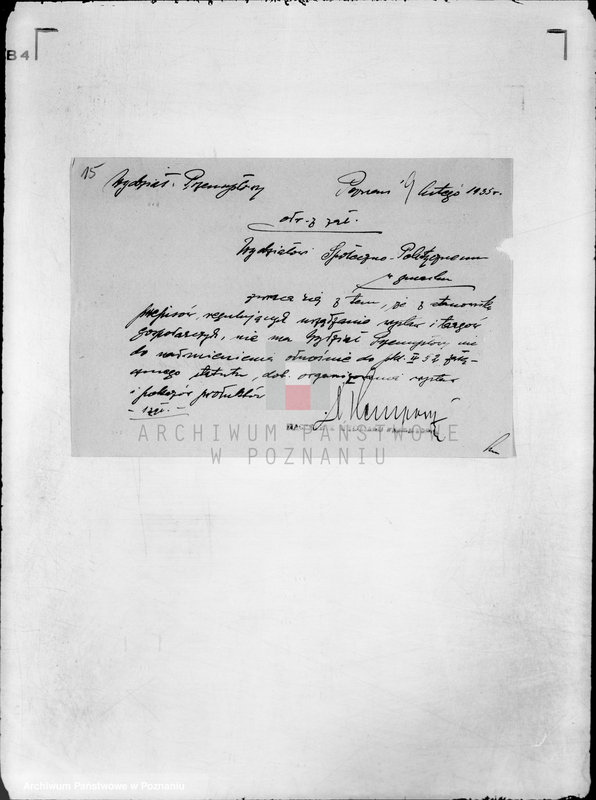 B4
15
Wydział Przemysłowy Poznań 9 lutego 1935 r.
odr. z zał.
Wydziałowi Społeczno-Politycznemu
w gmachu
zwraca się z tem, że z stanowiska
przepisów, regulujących urządzanie wystaw i targów
gospodarczych, nie ma Wydział Przemysłowy nic
do nadmienienia odnośnie do pkt. II § 2
statutu, dot. organizowania wystaw
i pokazów produktów
ARCHIWUM PAŃSTWOWE
W POZNANIU
Archiwum Państwowe w Poznaniu